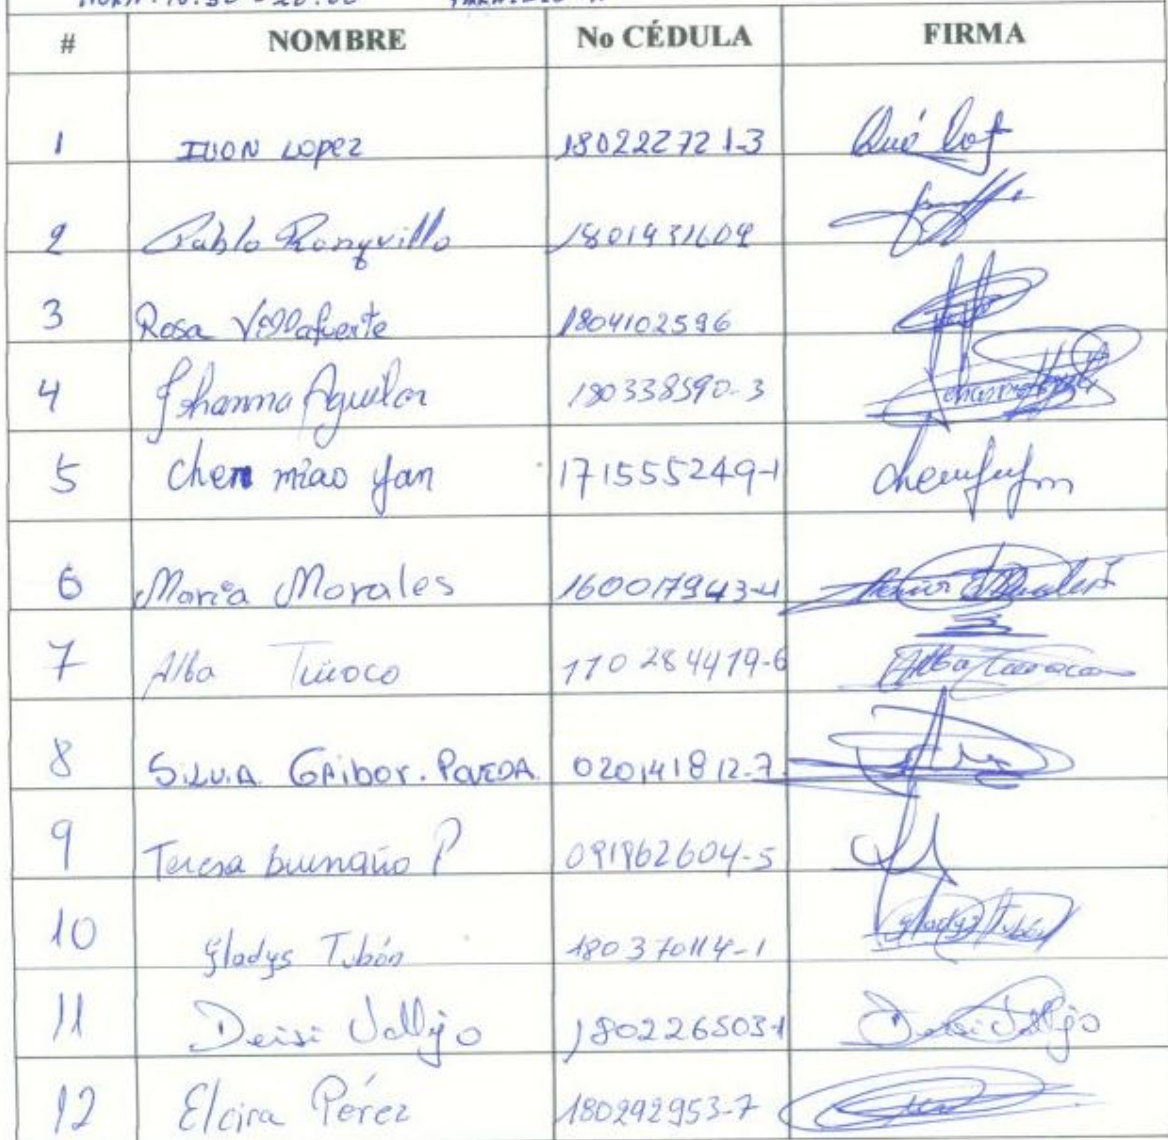 HORA: 18:30 - 20:00
# NOMBRE No CÉDULA FIRMA
1 IVON LOPEZ 180222721-3
2 Pablo Ronquillo 1801931609
3 Rosa Villafuerte 1804102596
4 Jhanna Aguilar 180338590-3
5 Chen miao yan 171555249-1
6 Maria Morales 160017943-4 Maria Morales
7 Alba Tinoco 110284479-6 Alba Tinoco
8 SILVIA GAibor. POVEDA 020141812-7
9 Teresa P 091962604-5
10 Gladys Tubón 180370114-1 Gladys Tubón
11 Deisi Vallejo 180226503-1 Deisi Vallejo
12 Elcira Pérez 180292953-7